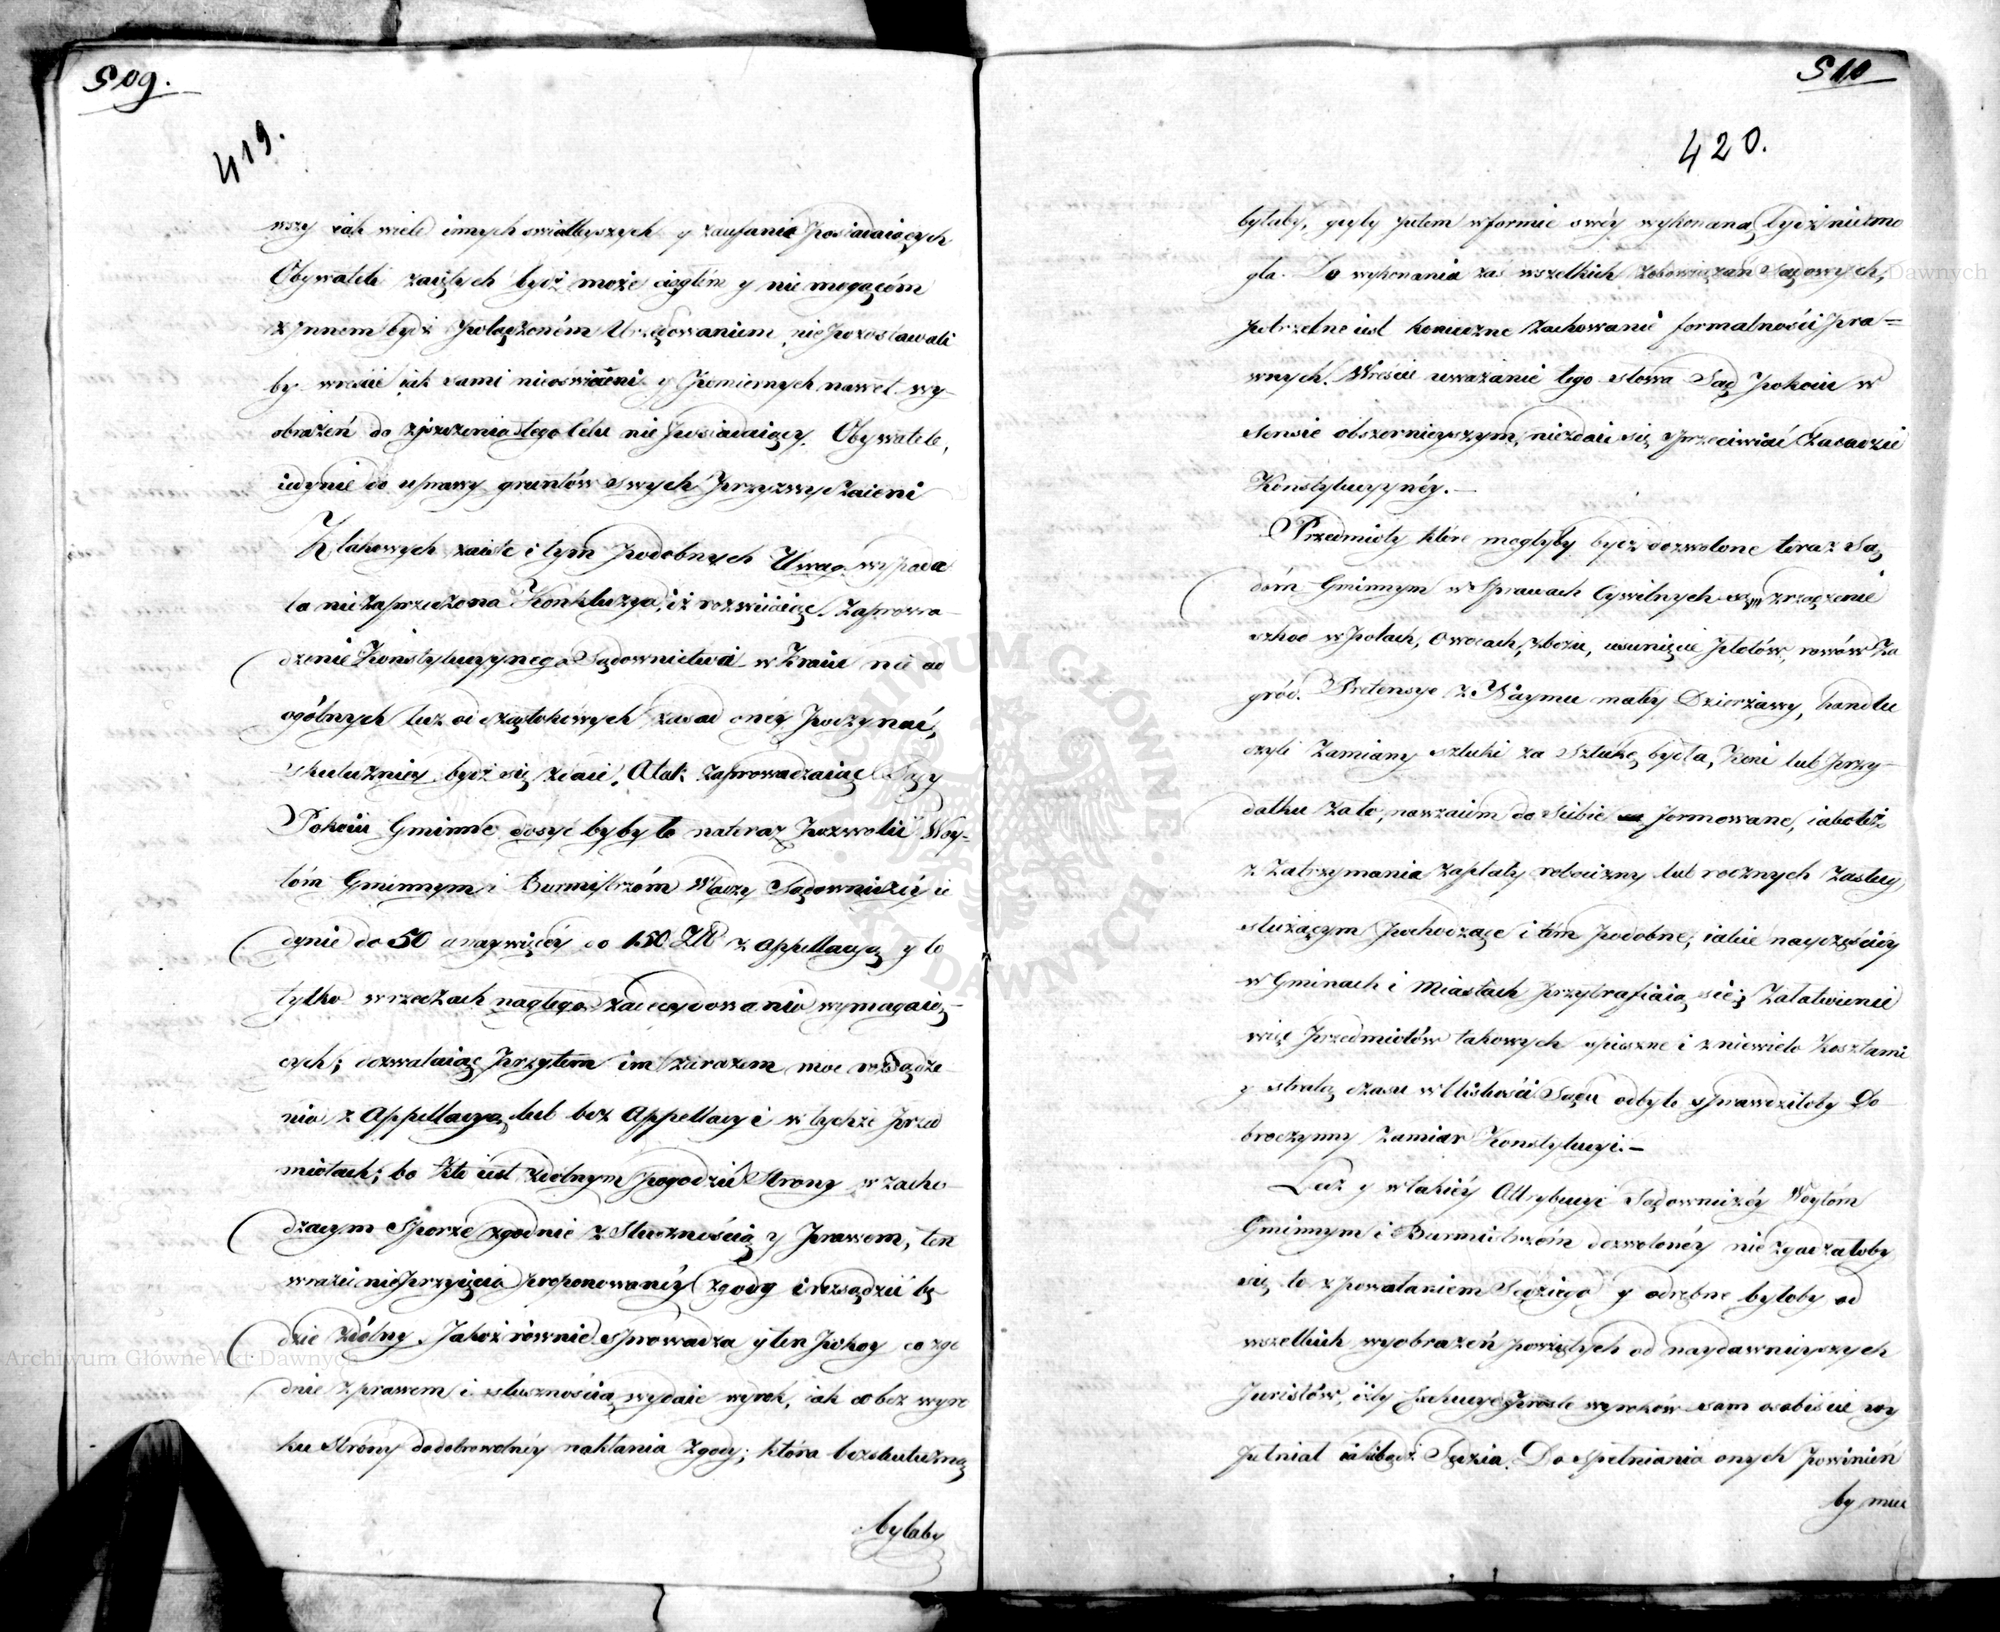 509.
419.
wszy iak wiele innych światleyszych y zaufanie posiadaiących
Obywateli zaiętych bydź może ciągłém y nie mogącém
z innem bydź połączoném Urzędowaniem, nie pozostawali
by wreście iak sami nieoświeceni y pomiernych nawet wy-
obrażeń do ziszczenia tego Celu nie posiadaiący Obywatele,
iedynie do uprawy gruntów swych przyzwyczaieni
Z takowych zaiste i tym podobnych Uwag wypada
ta niezaprzeczona Konkluzya, iż rozwiiaiąc zaprowa-
dzenie Konstytucyynego Sądownictwa w Kraiu nie od
ogólnych lecz od cząstkowych zasad onéy poczynać,
skuteczniey bydź się zdaie. A tak zaprowadzaiąc Sądy
Pokoiu Gminne dosyć byby to na teraz pozwolić Woy-
tóm Gminnym i Burmistrzóm Władzy Sądowniczéy ie
dynie do 50 a naywięcéy do 150 Złł z Appellacyą y to
tylko w rzeczach nagłego zadecydowania wymagaią-
cych; dozwalaiąc przytem im zarazem moc rozsądze-
nia z Appellacyą lub bez Appellacyi w tychże przed
miotach; bo kto iest zdolnym pogodzić Strony w zacho-
dzącym Sporze zgodnie z Słusznością y Prawem, ten
w razie nieprzyięcia proponowanéy zgody i rozsądzić bę
dzie zdólny. Jakoż równie sprowadza y ten pokoy co zgo
dnie z prawem i słusznością wydaie wyrok, iak co bez wyro
ku Stróny do dobrowolnéy nakłania zgody; która bezskuteczną
byłaby
510
420.
byłaby, gdyby potem w formie swéy wykonaną bydź niemo
gła. Do wykonania zaś wszelkich zobowiązań Sądowych,
potrzebne iest konieczne zachowanie formalności pra=
wnych. Wreście uważanie tego słowa Sąd Pokoiu w
sensie obszernieyszym, niezdaie się sprzeciwiać Zasadzie
Konstytucyynéy.—
Przedmioty które mogłyby bydź dozwolone teraz Są
dóm Gminnym w Sprawach Cywilnych zrządzenie
szkod w polach, owocach, zbożu, usunięcie płotów, rowów za
gród. Pretensye z Naymu małey Dzierżawy, handlu
czyli Zamiany sztuki za sztukę bydła, Koni lub przy-
datku za to, nawzaiem do siebie formowane, iakoteż
z zatrzymania zapłaty robocizny lub rocznych zasług
służącym pochodzące i tém podobne, iakie nayczęściéy
w Gminach i Miastach przytrafiaią się; Załatwienie
więc przedmiotów takowych spieszne i z niewielo kosztami
y stratą czasu w bliskości Sądu odbyte sprawdziłoby Do-
broczynny zamiar Konstytucyi.—
Lecz y w takiéy Attrybucyi Sądowniczéy Woytóm
Gminnym i Burmistrzóm dozwolonéy nie zgadzałoby
się to z powołaniem Sędziego y odrębne byłoby od
wszelkich wyobrażeń powziętych od naydawnieyszych
Juristów, iżby Exekucye proste wyroków sam osobiście wy
pełniał iakibądź Sędzia. Do spełniania onych powinień
by mieć